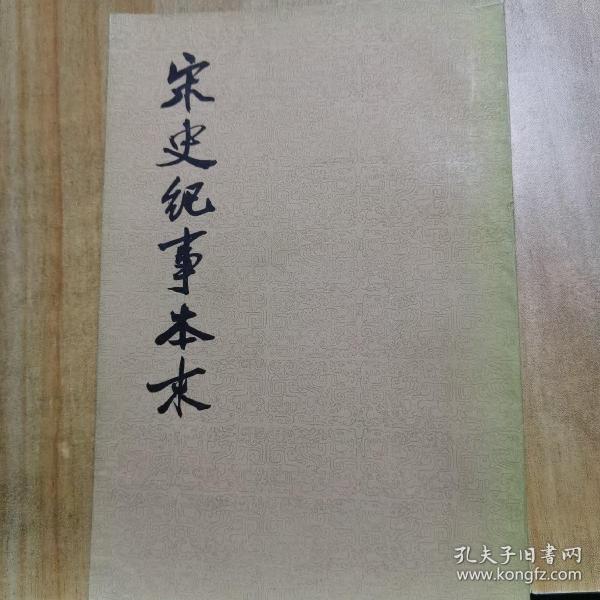 宋史纪事本末
孔夫子旧書网
www.kongfz.com